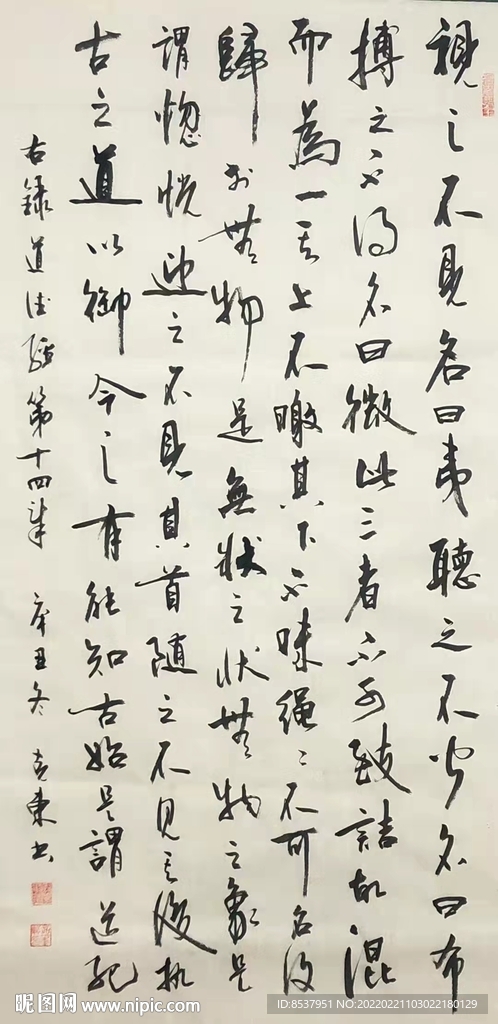 視之不見名曰夷聽之不聞名曰希
搏之不得名曰微此三者不可致詰故混
而為一其上不皦其下不昧繩〻不可名復
歸於無物是無狀之狀無物之象是
謂惚恍迎之不見其首隨之不見其後執
古之道以御今之有能知古始是謂道紀
右錄道德經第十四章 辛丑冬 東書
昵图网 www.nipic.com
ID:8537951 NO:20220221103022180129